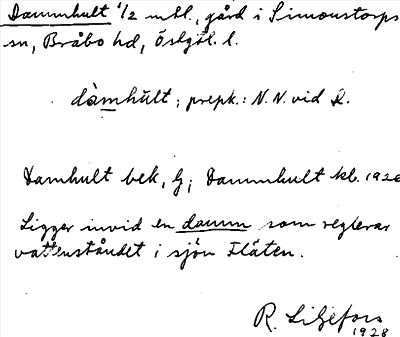 Dammhult 1/2 mtl., gård i Simonstorps
sn, Bråbo hd, Östgöt. l.
dàmhu̇lt; prepk.: N. N. vid D.
Damhult bek, G; Dammhult kb. 1926
Ligger invid en damm som reglerar
vattenståndet i sjön Fläten.
R. Liljefors
1928